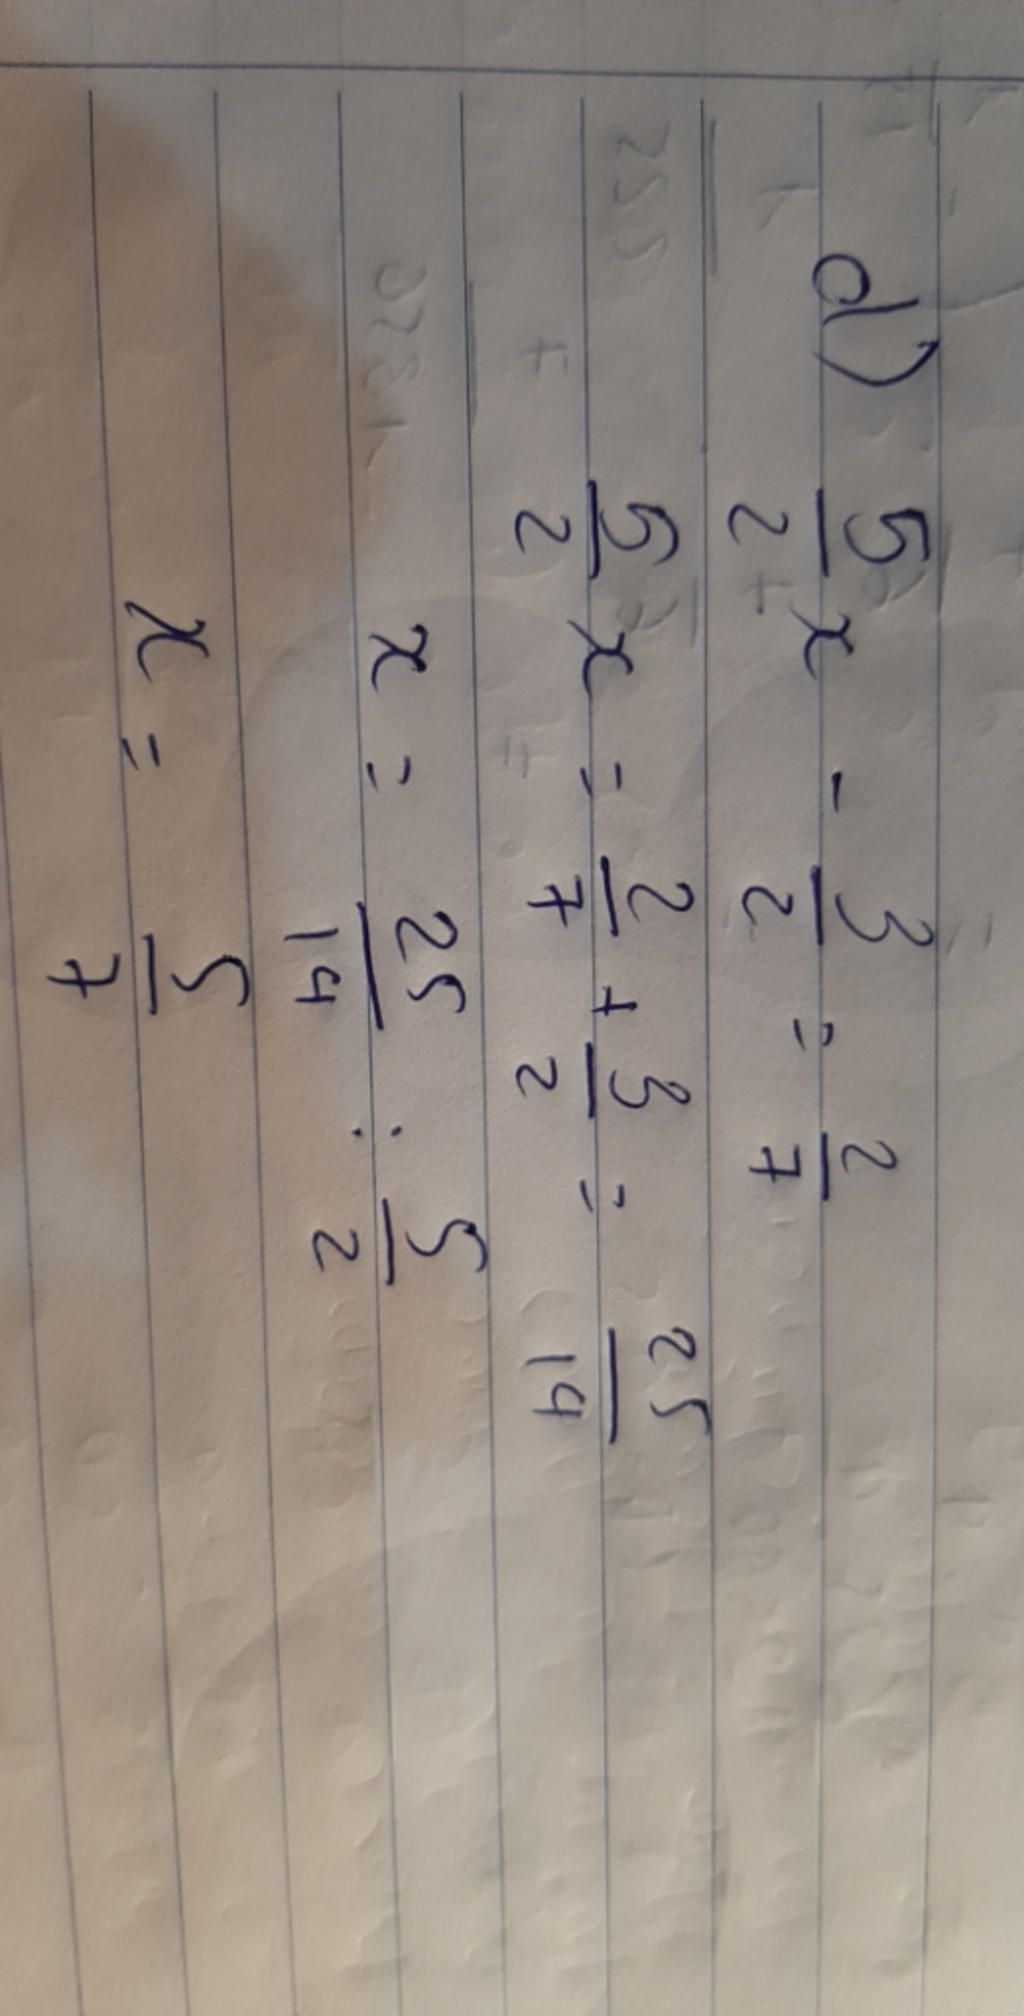 d) 5/2 x - 3/2 = 2/7
5/2 x = 2/7 + 3/2 = 25/14
x = 25/14 : 5/2
x = 5/7